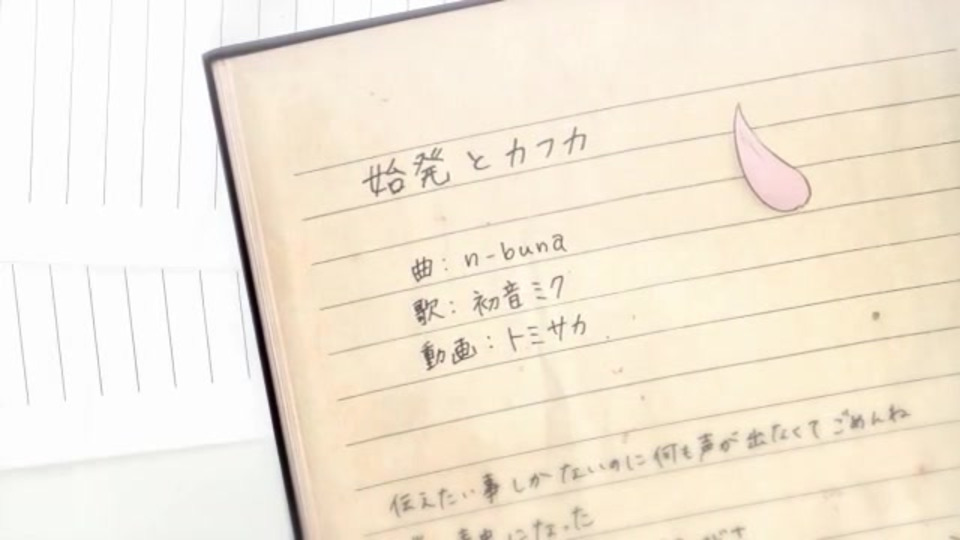 始発とカフカ
曲：n-buna
歌：初音ミク
動画：トミサカ
伝えたい事しかないのに何も声が出なくてごめんね
になった